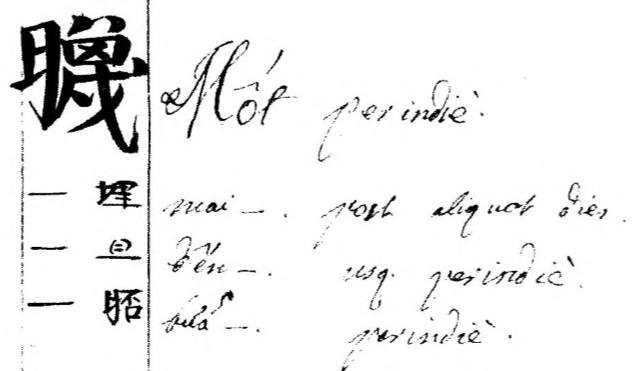 Mốt perindiè.
一 埋 mai _. post aliquot dies.
一 旦 đến _. usq. perindiè.
一 bữa _. perindiè.